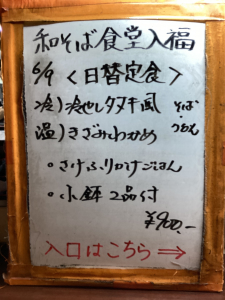 和そば食堂入福
6/9 <日替定食>
冷)冷やしタヌキ風 そば・
温)きざみわかめ うどん
・さけふりかけごはん
・小鉢2品付
¥900.-
入口はこちら⇒